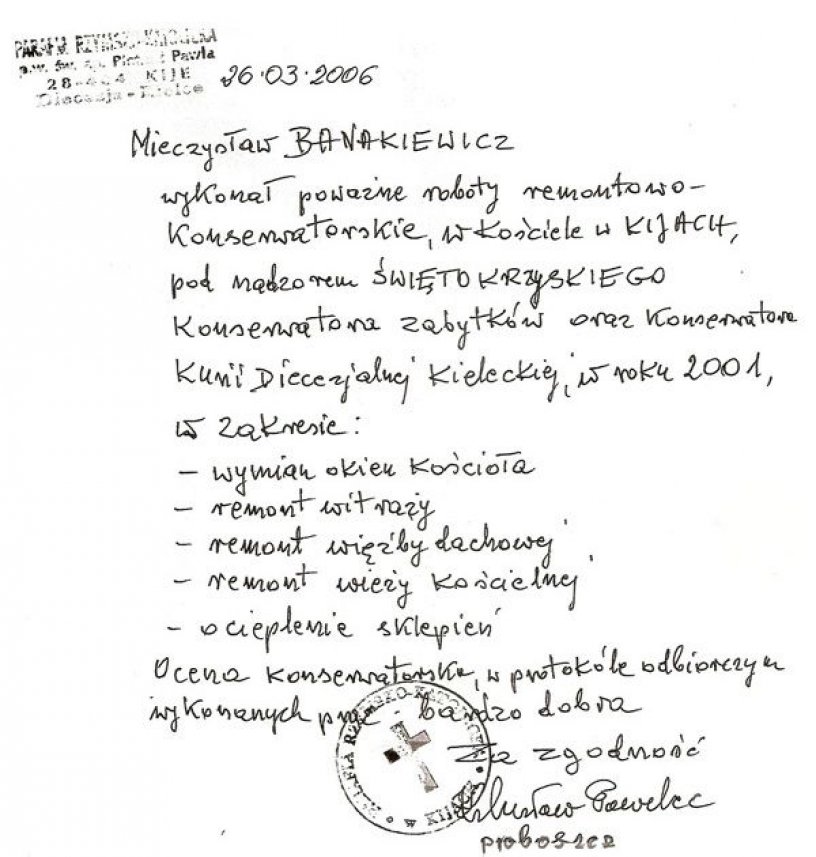 PARAFIA RZYMSKO-KATOLICKA
p.w. Św. Ap. Piotra i Pawła
KIJE
Diecezja - Kielce
26.03.2006
Mieczysław BANAKIEWICZ
wykonał poważne roboty remontowo-
Konserwatorskie, w Kościele w KIJACH,
pod nadzorem ŚWIĘTOKRZYSKIEGO
Konserwatora zabytków oraz Konserwatora
Kurii Diecezjalnej Kieleckiej, w roku 2001,
w zakresie:
- wymian okien Kościoła
- remont witraży
- remont więźby dachowej
- remont wieży Kościelnej
- ocieplenie sklepień
Ocena Konserwatorska, w protokóle odbiorczym
wykonanych prac - bardzo dobra
PARAFIA RZYMSKO-KATOLICKA w KIJACH
Za zgodność
Pawelec
proboszcz